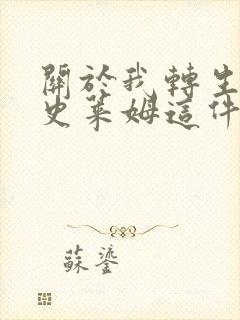 關於我轉生
史萊姆這件
蘇鎏